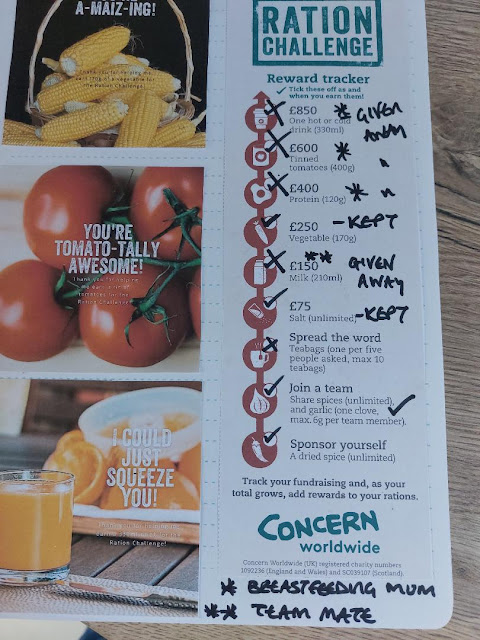 A-MAIZ-ING!
Thank you for helping me
earn 170g of a vegetable for
the Ration Challenge!
YOU'RE
TOMATO-TALLY
AWESOME!
Thank you for helping
me earn a tin of
tomatoes for the
Ration Challenge!
I COULD
JUST
SQUEEZE
YOU!
Ration Challenge!
RATION
CHALLENGE
Reward tracker
✓ Tick these off as and
when you earn them!
£850 * GIVEN
One hot or cold AWAY
drink (330ml)
£600 * "
Tinned
tomatoes (400g)
£400 * "
Protein (120g)
£250 - KEPT
Vegetable (170g)
£150 ** GIVEN
Milk (210ml) AWAY
£75
Salt (unlimited) - KEPT
Spread the word
Teabags (one per five
people asked, max 10
teabags)
Join a team
Share spices (unlimited),
and garlic (one clove,
max. 6g per team member).
Sponsor yourself
A dried spice (unlimited)
Track your fundraising and, as your
total grows, add rewards to your rations.
CONCERN
worldwide
Concern Worldwide (UK) registered charity numbers
1092236 (England and Wales) and SC039107 (Scotland).
* BREASTFEEDING MUM
** TEAM MATE